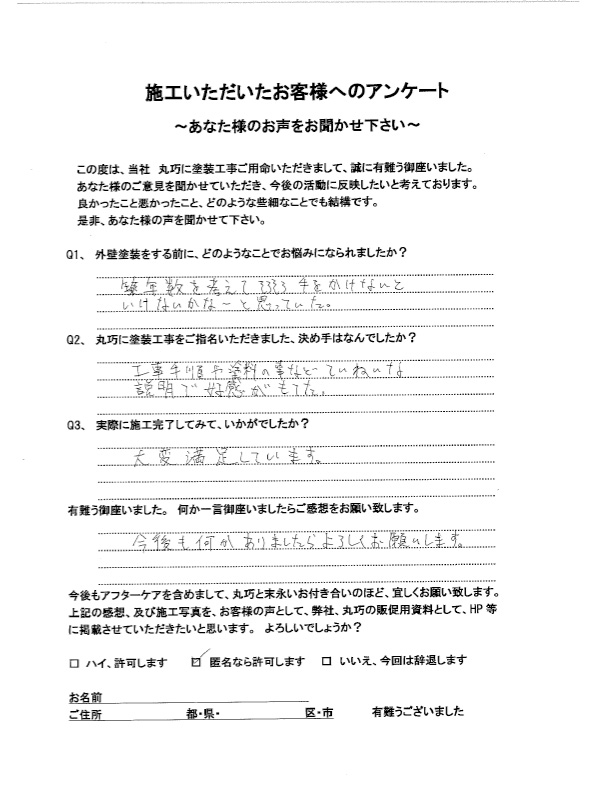 施工いただいたお客様へのアンケート
～あなた様のお声をお聞かせ下さい～
この度は、当社　丸巧に塗装工事ご用命いただきまして、誠に有難う御座いました。
あなた様のご意見を聞かせていただき、今後の活動に反映したいと考えております。
良かったこと悪かったこと、どのような些細なことでも結構です。
是非、あなた様の声を聞かせて下さい。
Q1、 外壁塗装をする前に、どのようなことでお悩みになられましたか？
築年数を考えてそろそろ手をかけないと
いけないかなーと思っていた。
Q2、 丸巧に塗装工事をご指名いただきました、決め手はなんでしたか？
工事手順や塗料の事などていねいな
説明で好感がもてた。
Q3、 実際に施工完了してみて、いかがでしたか？
大変満足しています。
有難う御座いました。 何か一言御座いましたらご感想をお願い致します。
今後も何かありましたらよろしくお願いします。
今後もアフターケアを含めまして、丸巧と末永いお付き合いのほど、宜しくお願い致します。
上記の感想、及び施工写真を、お客様の声として、弊社、丸巧の販促用資料として、HP 等
に掲載させていただきたいと思います。 よろしいでしょうか？
□ ハイ、許可します　☑ 匿名なら許可します　□ いいえ、今回は辞退します
お名前
ご住所　都・県・　区・市　有難うございました